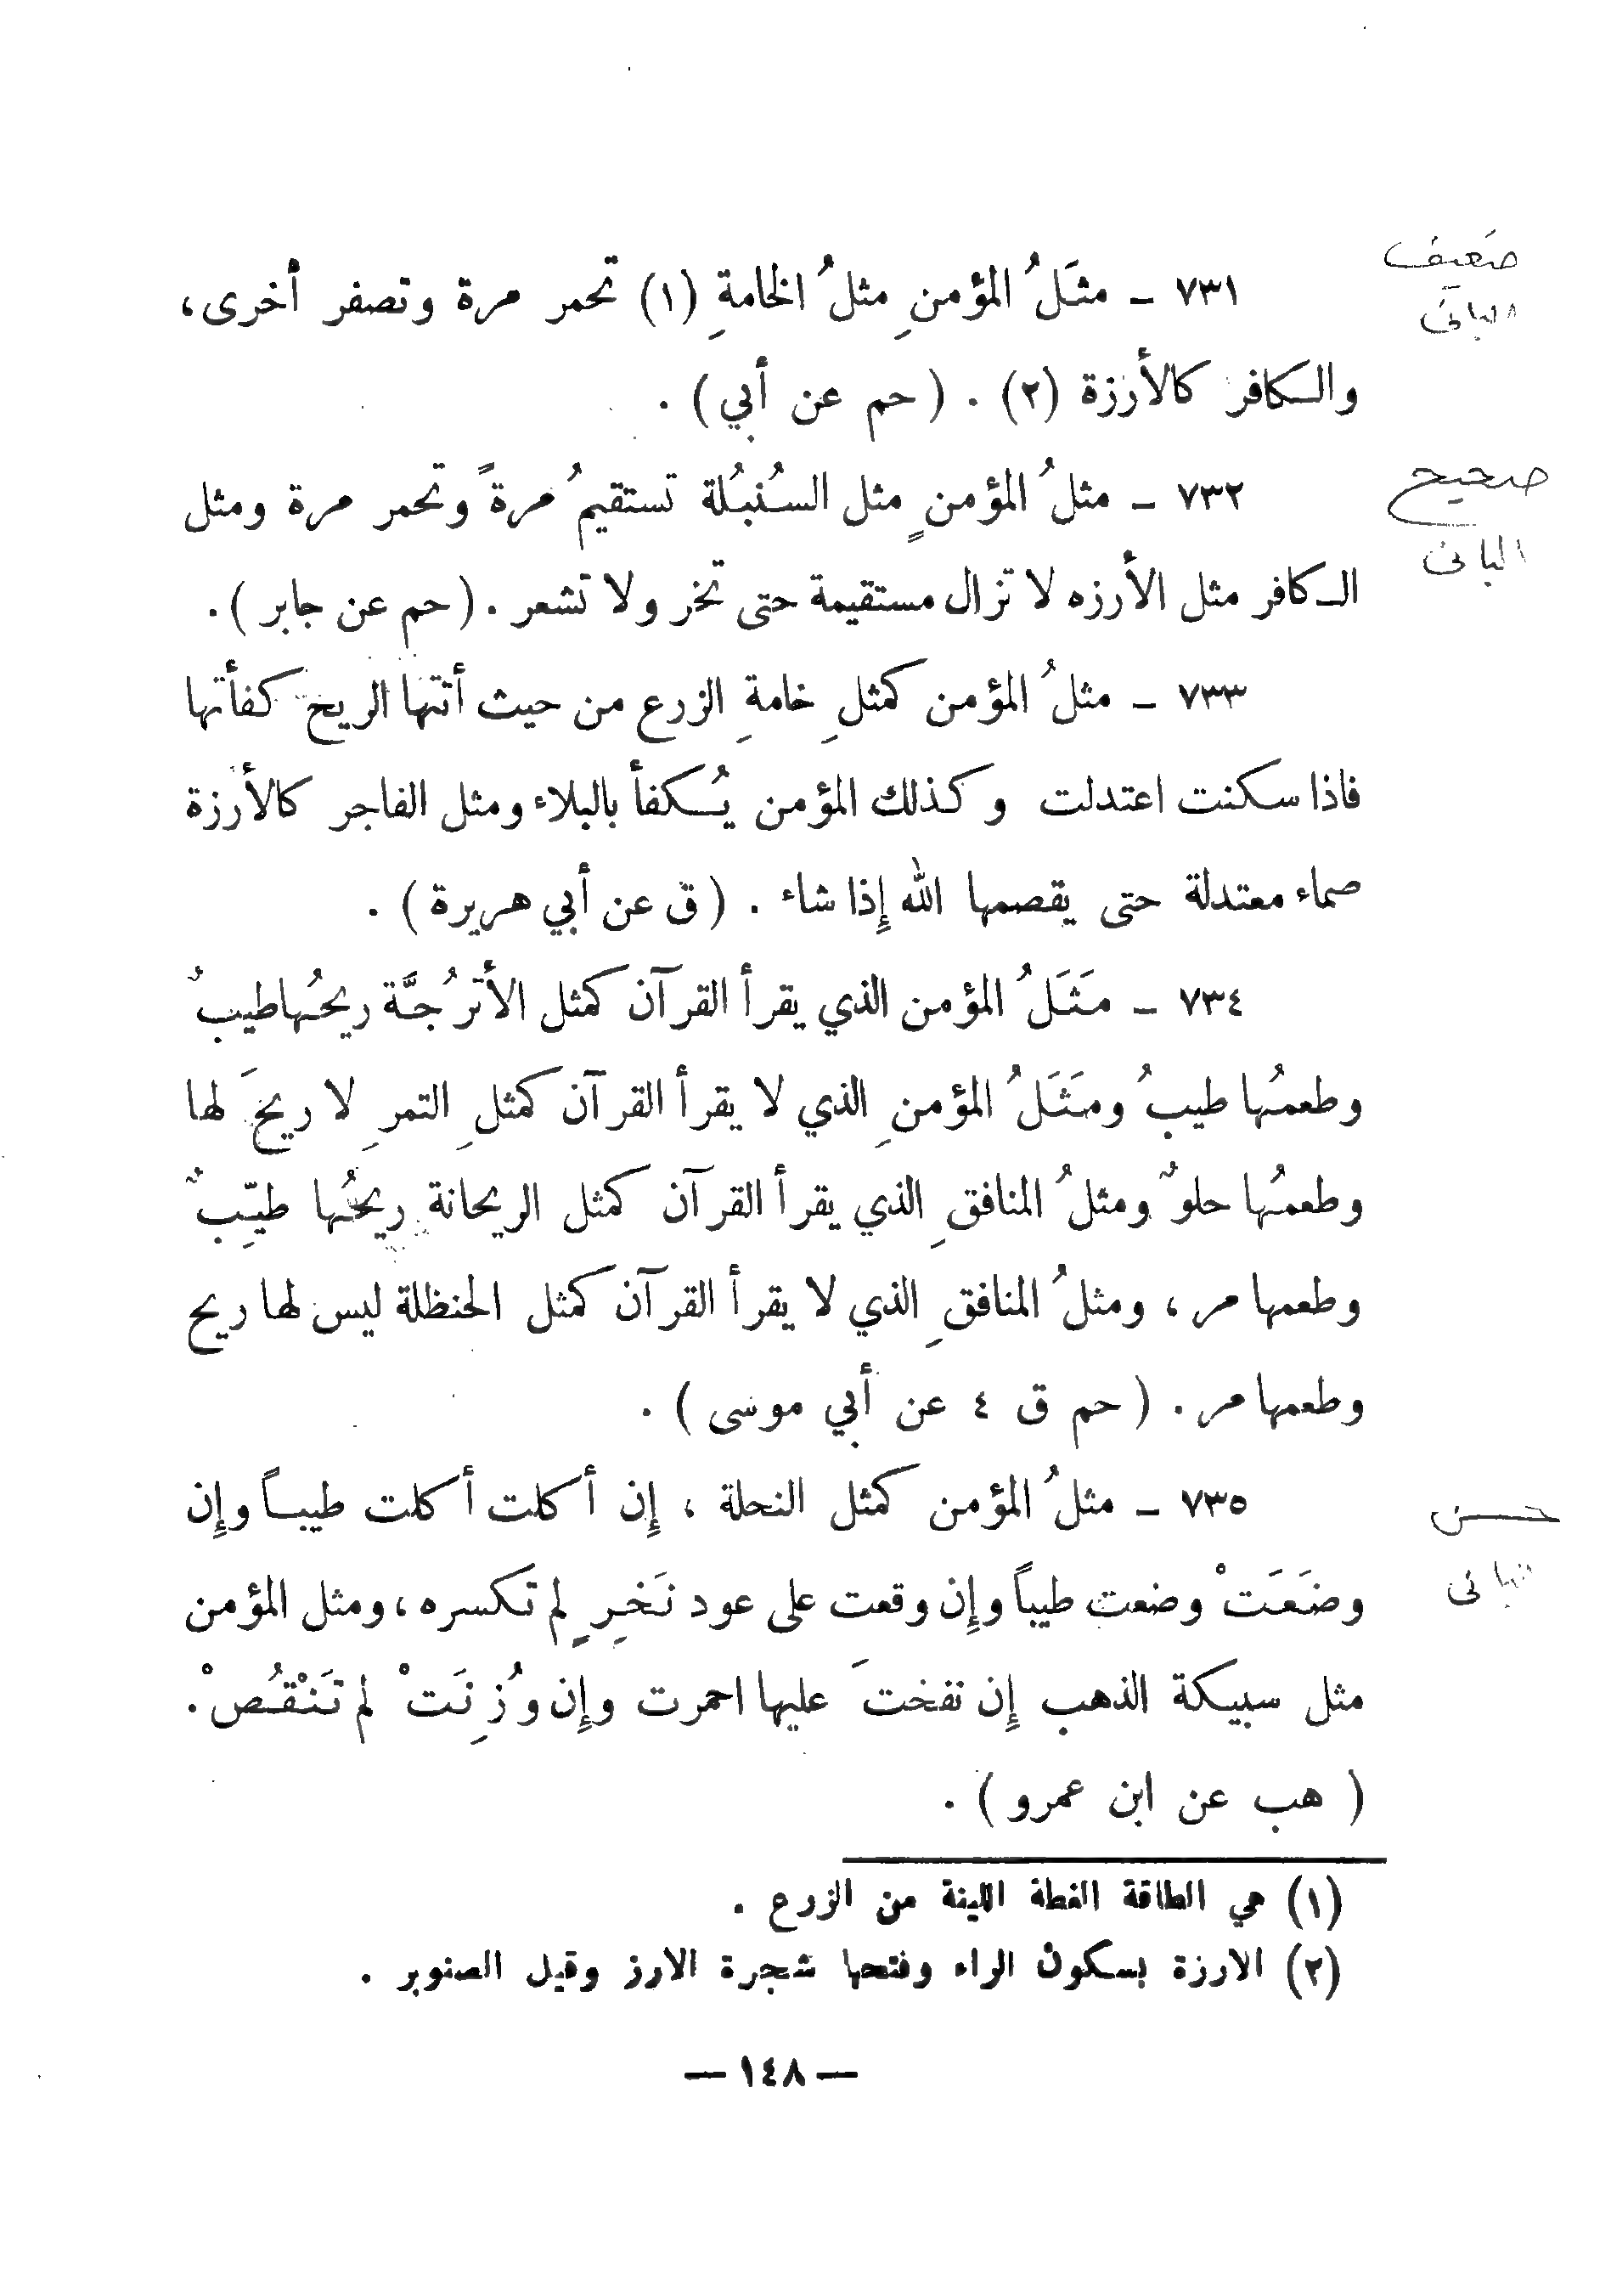 ضعيف
البانى
٧٣١ ـ مثَلُ المؤمنِ مثلُ الخامةِ (١) تحمر مرة وتصفر أخرى،
والكافر كالأرزة (٢) . ( حم عن أبي ) .
صحيح
البانى
٧٣٢ ـ مثلُ المؤمنٍ مثل السُنبُلة تستقيمُ مرةً وتحمر مرة ومثل
الكافر مثل الأرزه لا تزال مستقيمة حتى تخر ولا تشعر . ( حم عن جابر ) .
٧٣٣ ـ مثلُ المؤمن كمثلِ خامةِ الزرع من حيث أتتها الريح كفأتها
فاذا سكنت اعتدلت وكذلك المؤمن يُكفأ بالبلاء ومثل الفاجر كالأرزة
صماء معتدلة حتى يقصمها الله إذا شاء . ( ق عن أبي هريرة ) .
٧٣٤ ـ مَثَلُ المؤمن الذي يقرأ القرآن كمثل الأترُجَّة ريحُها طيبٌ
وطعمُها طيبُ ومَثَلُ المؤمنِ الذي لا يقرأ القرآن كمثلِ التمرِ لا ريحَ لها
وطعمُها حلوٌ ومثلُ المنافقِ الذي يقرأ القرآن كمثل الريحانة ريحُها طيِّبٌ
وطعمها مر ، ومثلُ المنافقِ الذي لا يقرأ القرآن كمثل الحنظلة ليس لها ريح
وطعمها مر . ( حم ق ٤ عن أبي موسى ) .
حسن
٧٣٥ ـ مثلُ المؤمن كمثل النحلة ، إن أكلت أكلت طيباً وإن
وضَعَتْ وضعت طيباً وإن وقعت على عود نَخِرٍ لم تكسره ، ومثل المؤمن
مثل سبيكة الذهب إن نفختَ عليها احمرت وإن وُزِنَتْ لم تَنْقُصْ .
( هب عن ابن عمرو ) .
(١) هي الطاقة الغطة اللينة من الزرع .
(٢) الارزة بسكون الراء وفتحها شجرة الارز وقيل الصنوبر .
— ١٤٨ —